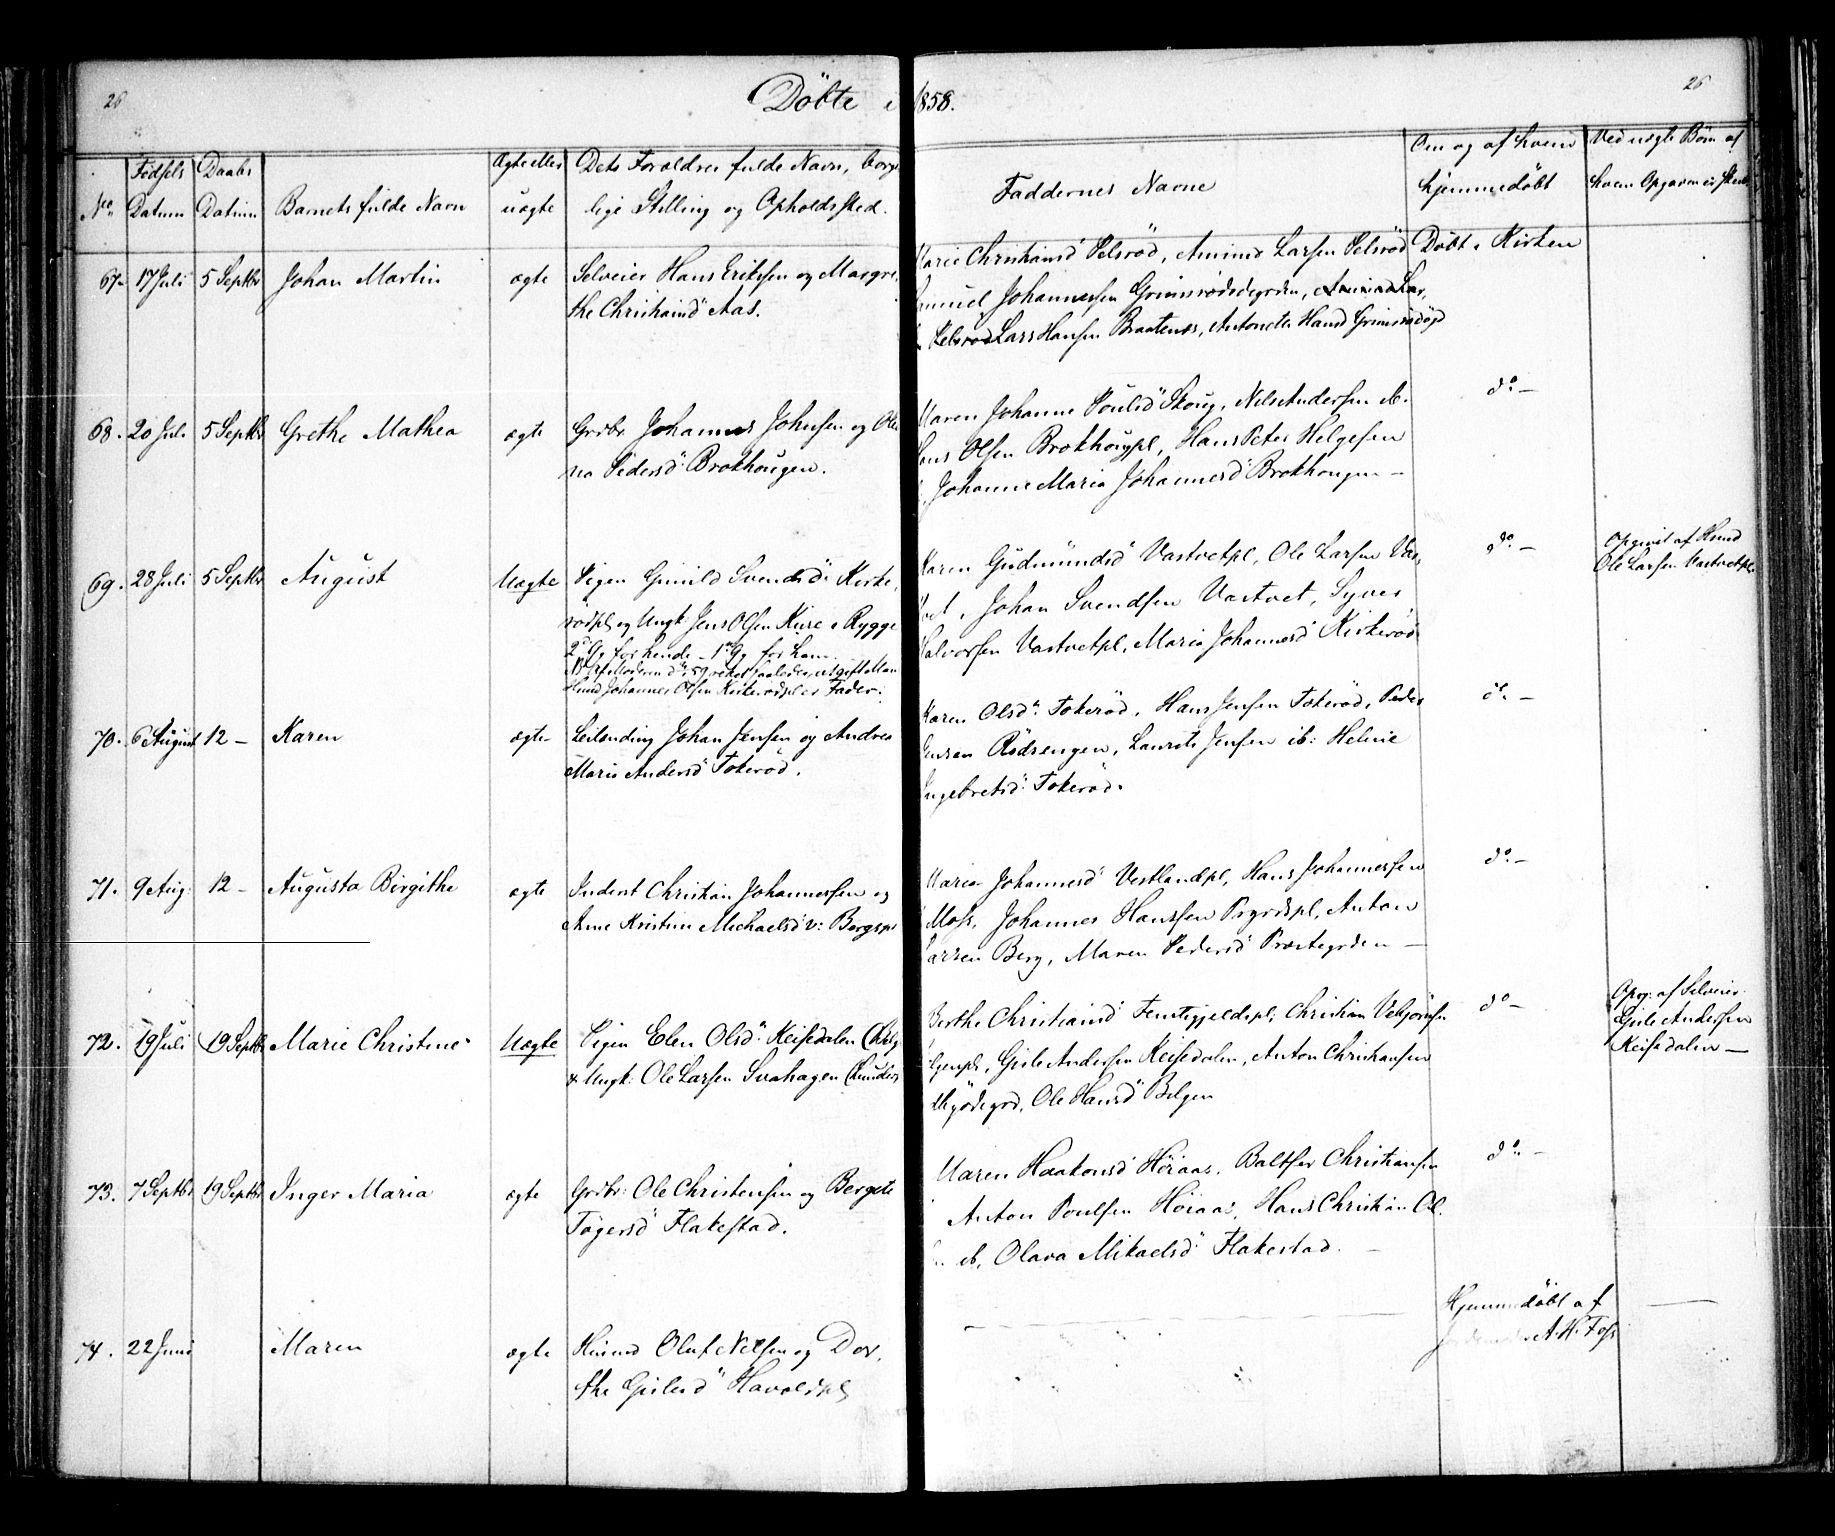 26
Döbte i 1858.
26
No
Födsels Datum
Daabs Datum
Barnets fulde Navn
Ægte eller uægte
Dets Forældres fulde Navn, borgerlige Stilling og Opholdssted.
Faddernes Navne
Om og af hvem hjemmedöbt
Ved uægte Børn af hvem
67. 17 Juli 5 Septbr Johan Martin ægte Selveier Hans Eriksen og Margre,
the Christiansd Aas.
Marie Christiansd Pelsröd, Amund Larsen Pelsröd Döbt i Kirken
Johannesen Grimsrödødegrden,
Lars Hansen Braatens, Hansd
68. 20 Juli 5 Septbr Grethe Mathea ægte Grdbr. Johannes Johnsen og Ole
na Pedersd Brokhougen.
Maren Johanne Poulsd Skoug, Nels Andersen ib.
Hans Olsen Brokhougpl, Hans Peter Helgesen
Johanne Maria Johannesd Brokhougen —
do —
69. 28 Juli 5 Septbr August Uægte Pigen Gunild Svendsd: Kirke,
rödpl og Ungk: Jens Olsen Kure i Rygge
2. Gg for hende – 1. Gg for ham.
Johannes Olsen Kirkerödpl er Fader.
Karen Gudmundsd Vastvetpl, Ole Larsen Vas,
vet, Johan Svendsen Vastvet, Syver
Halvorsen Vastvetpl, Maria Johannesd Kirkeröd
do —
Opgivet af
Ole Larsen Vastvetpl
70. 6 August 12 – Karen ægte Leilending Johan Jensen og Andrea
Marie Andersd Tokeröd.
Karen Olsd: Tokeröd, Hans Jensen Tokeröd, Peder
Jensen Rödsengen, Laurits Jensen ib: Helene
Ingebretsd: Tokeröd.
do —
71. 9 Aug: 12 – Augusta Birgithe ægte Inderst Christian Johannesen og
Anne Kristine Michaelsd v: Bergspl
Maria Johannesd Vestlandpl, Hans Johannessen
Moss, Johannes Hanssen Prgrdspl, Anton
Larsen Berg, Maren Pedersd Prestegrden —
do —
72. 19 Juli 19 Septbr Marie Christine Uægte Pigen Elen Olsd: Keisedalen
& Ungk: Ole Larsen Svahagen
Berthe Christiansd Christian
Gisle Andersen Keisedalen, Anton Christiansen
Ole Hansd Belgen
do —
Opg: af Selveier
Gisle Andersen
Keisedalen —
73. 7 Septbr 19 Septbr Inger Maria ægte Grdbr: Ole Christensen og Bergete
Tögersd Flakestad.
Maren Haakonsd Höiaas, Baltser Christiansen
Anton Poulsen Höiaas, Hans Christian Ol.
ib, Olava Mikaelsd Flakestad. —
do —
74. 22 Juni Maren ægte Husmd Oluf Nelsen og Dor,
the Gislesd Havoldpl
Hjemmedöbt af
A. H. Foss